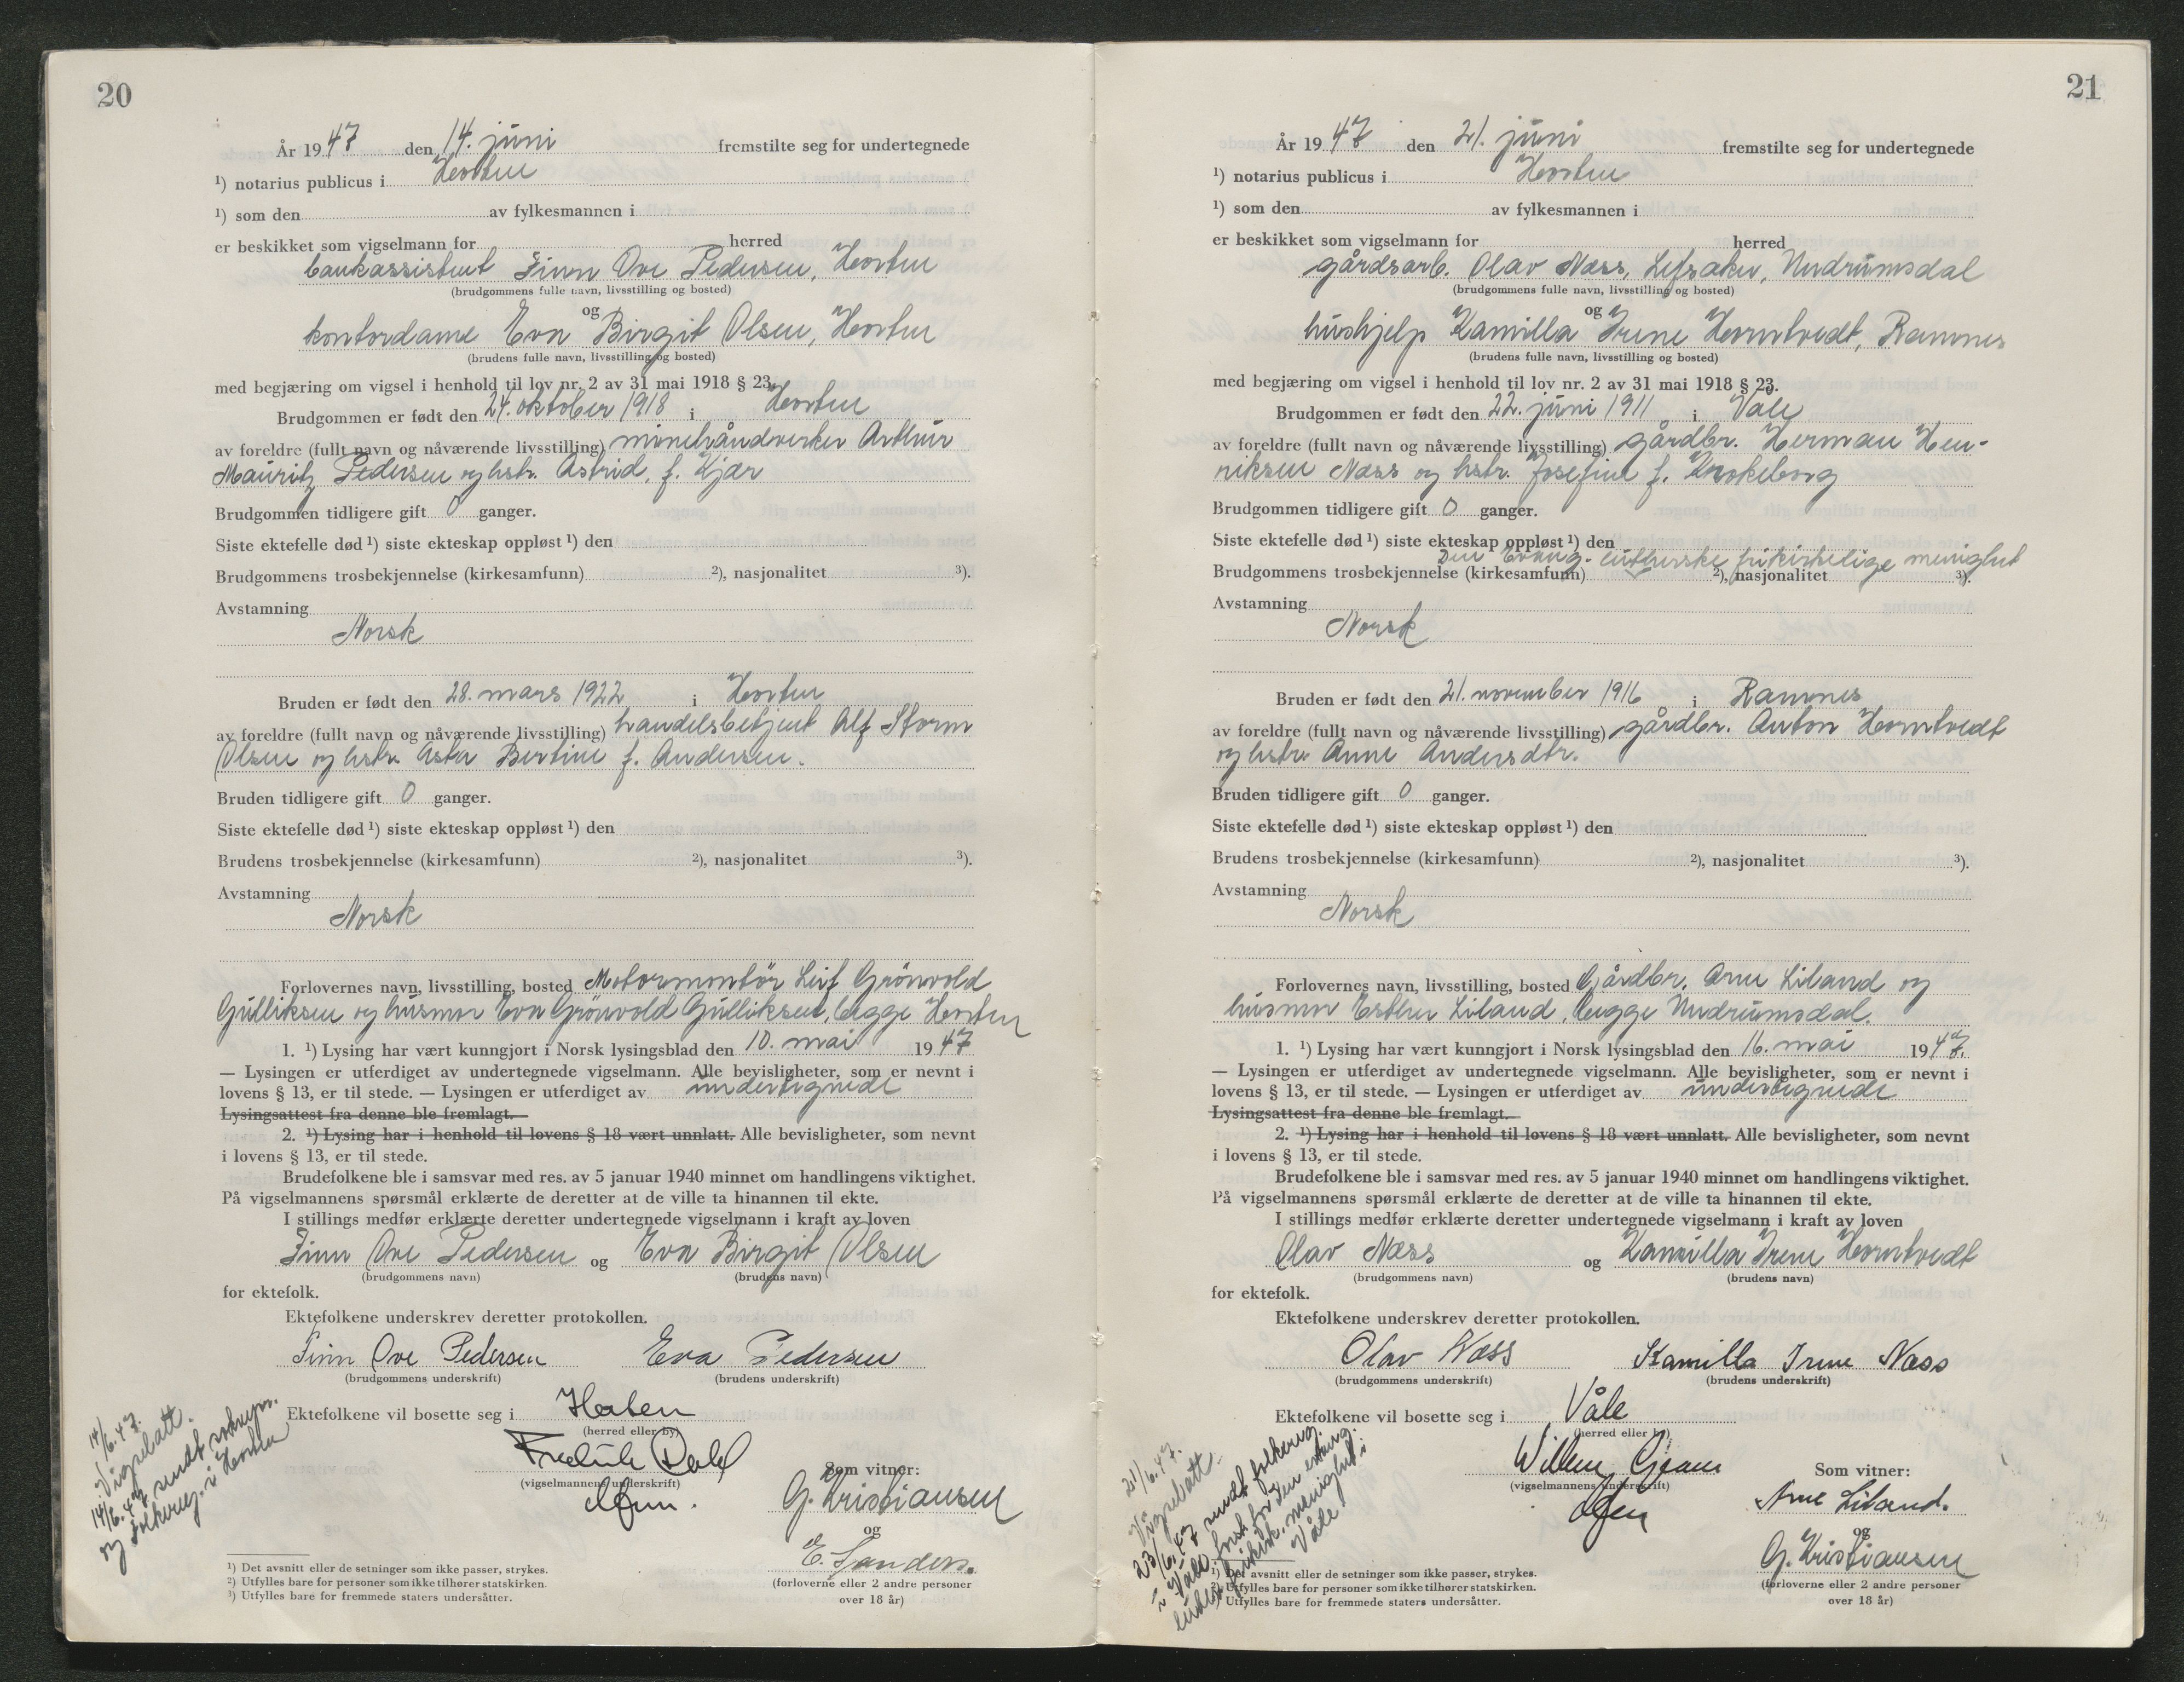 20
År 1947 den 14. juni fremstilte seg for undertegnede
¹) notarius publicus i Horten
¹) som den av fylkesmannen i
er beskikket som vigselmann for herred
bankassistent Finn Ove Pedersen, Horten
(brudgommens fulle navn, livsstilling og bosted)
og
kontordame Eva Birgit Olsen, Horten
(brudens fulle navn, livsstilling og bosted)
med begjæring om vigsel i henhold til lov nr. 2 av 31 mai 1918 § 23.
Brudgommen er født den 24. oktober 1918 i Horten
av foreldre (fullt navn og nåværende livsstilling) minehåndverker Arthur
Mauritz Pedersen og hstr. Astrid, f. Kjær
Brudgommen tidligere gift 0 ganger.
Siste ektefelle død ¹) siste ekteskap oppløst ¹) den
Brudgommens trosbekjennelse (kirkesamfunn) ²), nasjonalitet ³).
Avstamning
Norsk
Bruden er født den 28. mars 1922 i Horten
av foreldre (fullt navn og nåværende livsstilling) handelsbetjent Alf Storm
Olsen og hstr. Asta Bertine f. Andersen.
Bruden tidligere gift 0 ganger.
Siste ektefelle død ¹) siste ekteskap oppløst ¹) den
Brudens trosbekjennelse (kirkesamfunn) ²), nasjonalitet ³).
Avstamning
Norsk
Forlovernes navn, livsstilling, bosted Motormontör Leif Grönvold
Gulliksen og husmor Eva Grönvold Gulliksen, begge Horten
1. ¹) Lysing har vært kunngjort i Norsk lysingsblad den 10. mai 1947
— Lysingen er utferdiget av undertegnede vigselmann. Alle bevisligheter, som er nevnt i
lovens § 13, er til stede. — Lysingen er utferdiget av undertegnede
Lysingsattest fra denne ble fremlagt.
2. ¹) Lysing har i henhold til lovens § 18 vært unnlatt. Alle bevisligheter, som nevnt
i lovens § 13, er til stede.
Brudefolkene ble i samsvar med res. av 5 januar 1940 minnet om handlingens viktighet.
På vigselmannens spørsmål erklærte de deretter at de ville ta hinannen til ekte.
I stillings medfør erklærte deretter undertegnede vigselmann i kraft av loven
Finn Ove Pedersen og Eva Birgit Olsen
(brudgommens navn) (brudens navn)
for ektefolk.
Ektefolkene underskrev deretter protokollen.
Finn Ove Pedersen Eva Pedersen
(brudgommens underskrift) (brudens underskrift)
Ektefolkene vil bosette seg i Horten
(herred eller by)
Fredrik Dahl
(vigselmannens underskrift)
Som vitner:
G. Kristiansen
og
E. Sanders.
(forloverne eller 2 andre personer
over 18 år)
14/6.47.
Vigselatt.
14/6.47 sendt soknepr.
og folkereg. i Horten
¹) Det avsnitt eller de setninger som ikke passer, strykes.
²) Utfylles bare for personer som ikke tilhører statskirken.
³) Utfylles bare for fremmede staters undersåtter.
21
År 1947 den 21. juni fremstilte seg for undertegnede
¹) notarius publicus i Horten
¹) som den av fylkesmannen i
er beskikket som vigselmann for herred
gårdsarb. Olav Næss, Lefsaker, Undrumsdal
(brudgommens fulle navn, livsstilling og bosted)
og
hushjelp Kamilla Irene Horntvedt, Ramnes
(brudens fulle navn, livsstilling og bosted)
med begjæring om vigsel i henhold til lov nr. 2 av 31 mai 1918 § 23.
Brudgommen er født den 22. juni 1911 i Våle
av foreldre (fullt navn og nåværende livsstilling) gårdbr. Herman Hen-
riksen Næss og hstr. Josefine f. Knokeborg
Brudgommen tidligere gift 0 ganger.
Siste ektefelle død ¹) siste ekteskap oppløst ¹) den
Den Evang.-lutherske frikirkelige menighet
Brudgommens trosbekjennelse (kirkesamfunn) ²), nasjonalitet ³).
Avstamning
Norsk
Bruden er født den 21. november 1916 i Ramnes
av foreldre (fullt navn og nåværende livsstilling) gårdbr. Anton Horntvedt
og hstr. Anne Andersdtr.
Bruden tidligere gift 0 ganger.
Siste ektefelle død ¹) siste ekteskap oppløst ¹) den
Brudens trosbekjennelse (kirkesamfunn) ²), nasjonalitet ³).
Avstamning
Norsk
Forlovernes navn, livsstilling, bosted Gårdbr. Arne Liland og
husmor Esther Liland, begge Undrumsdal.
1. ¹) Lysing har vært kunngjort i Norsk lysingsblad den 16. mai 1947.
— Lysingen er utferdiget av undertegnede vigselmann. Alle bevisligheter, som er nevnt i
lovens § 13, er til stede. — Lysingen er utferdiget av undertegnede
Lysingsattest fra denne ble fremlagt.
2. ¹) Lysing har i henhold til lovens § 18 vært unnlatt. Alle bevisligheter, som nevnt
i lovens § 13, er til stede.
Brudefolkene ble i samsvar med res. av 5 januar 1940 minnet om handlingens viktighet.
På vigselmannens spørsmål erklærte de deretter at de ville ta hinannen til ekte.
I stillings medfør erklærte deretter undertegnede vigselmann i kraft av loven
Olav Næss og Kamilla Irene Horntvedt
(brudgommens navn) (brudens navn)
for ektefolk.
Ektefolkene underskrev deretter protokollen.
Olav Næss Kamilla Irene Næss
(brudgommens underskrift) (brudens underskrift)
Ektefolkene vil bosette seg i Våle
(herred eller by)
Willem Gram
(vigselmannens underskrift)
Som vitner:
Arne Liland.
og
G. Kristiansen
(forloverne eller 2 andre personer
over 18 år)
21/6.47.
Vigselatt.
23/6.47 sendt folkereg.
i Våle, forst. for Den evang.
luther. frikirk. menighet i
Våle
¹) Det avsnitt eller de setninger som ikke passer, strykes.
²) Utfylles bare for personer som ikke tilhører statskirken.
Utfylles bare for fremmede staters undersåtter.